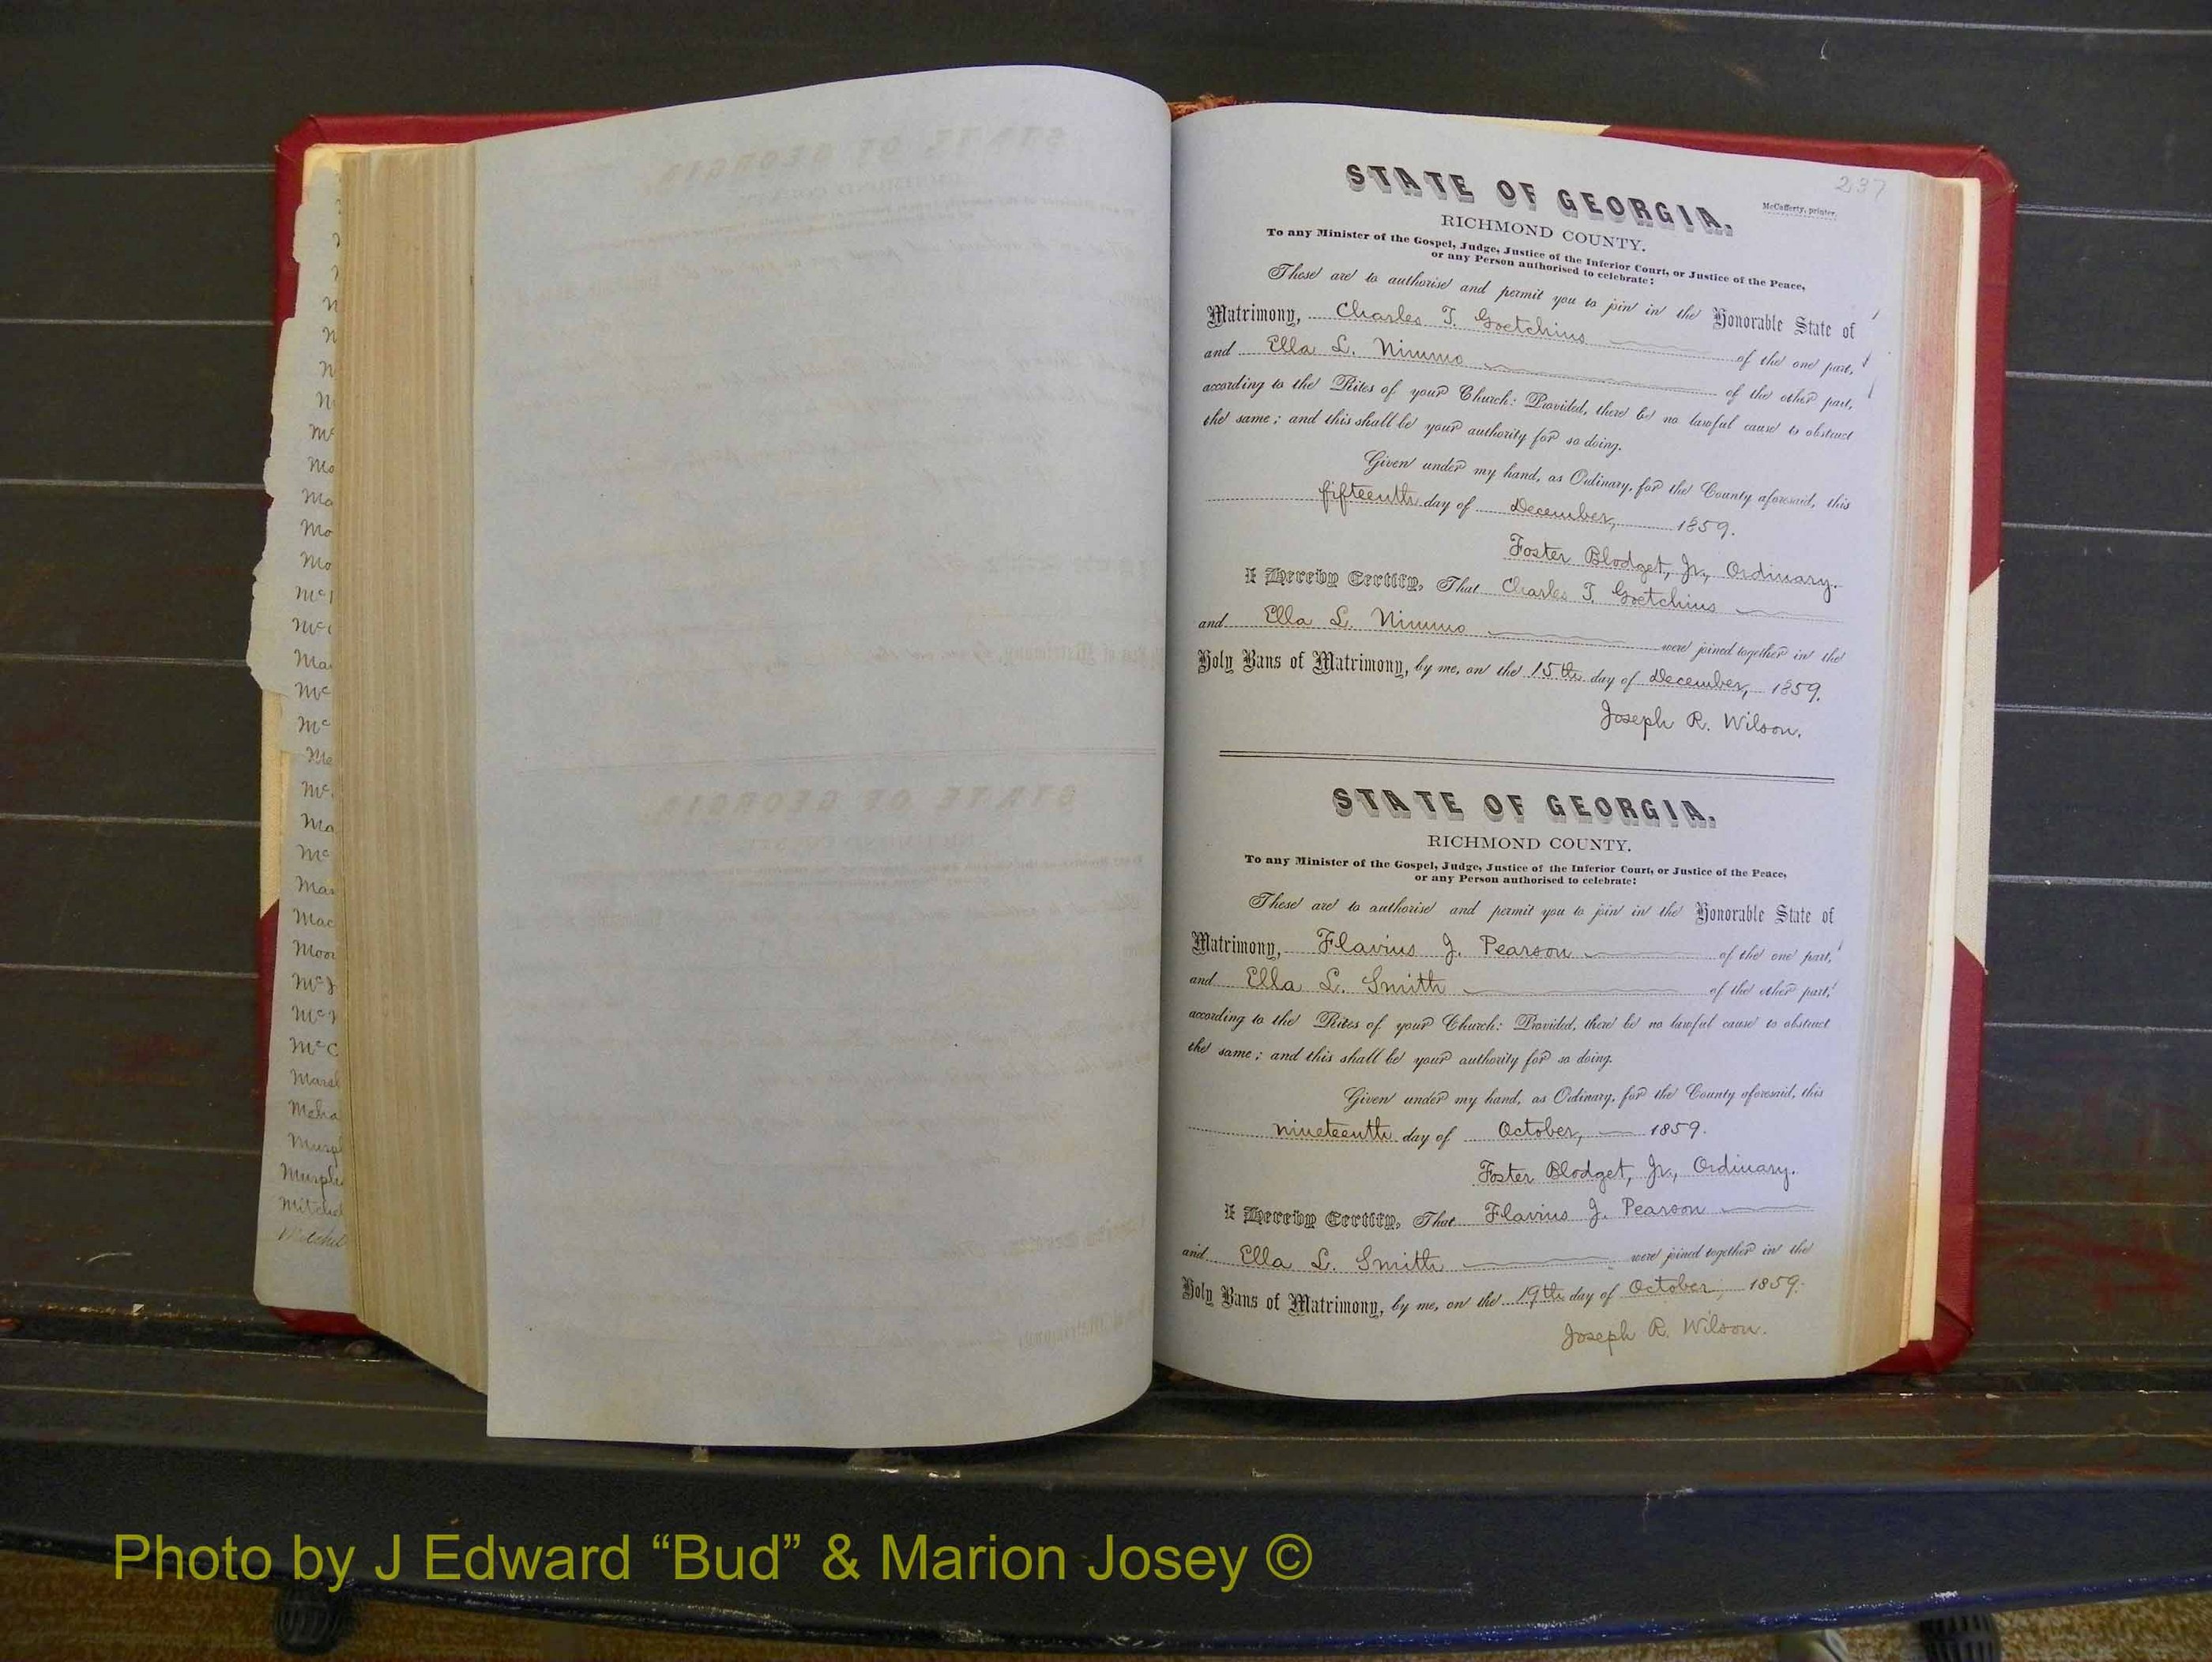 n
n
n
n
n
Mc
Mo
Ma
Mo
Mo
Ma
Mc
Mc
Me
Mc
Ma
Mc
Mas
Mac
Moor
Mc
Mc
McC
Marsh
Meha
Murp
Murph
Mitchel
Mitchel
237
McCafferty, printer.
STATE OF GEORGIA.
RICHMOND COUNTY.
To any Minister of the Gospel, Judge, Justice of the Inferior Court, or Justice of the Peace,
or any Person authorised to celebrate:
These are to authorise and permit you to join in the Honorable State of
Matrimony, Charles T. Goetchius of the one part,
and Ella L. Nimmo of the other part,
according to the Rites of your Church: Provided, there be no lawful cause to obstruct
the same; and this shall be your authority for so doing.
Given under my hand, as Ordinary, for the County aforesaid, this
fifteenth day of December, 1859.
Foster Blodget, Jr., Ordinary.
I Hereby Certify, That Charles T. Goetchius
and Ella L. Nimmo were joined together in the
Holy Bans of Matrimony, by me, on the 15th day of December, 1859.
Joseph R. Wilson.
STATE OF GEORGIA.
RICHMOND COUNTY.
To any Minister of the Gospel, Judge, Justice of the Inferior Court, or Justice of the Peace,
or any Person authorised to celebrate:
These are to authorise and permit you to join in the Honorable State of
Matrimony, Flavius J. Pearson of the one part,
and Ella L. Smith of the other part,
according to the Rites of your Church: Provided, there be no lawful cause to obstruct
the same; and this shall be your authority for so doing.
Given under my hand, as Ordinary, for the County aforesaid, this
nineteenth day of October, 1859.
Foster Blodget, Jr., Ordinary.
I Hereby Certify, That Flavius J. Pearson
and Ella L. Smith were joined together in the
Holy Bans of Matrimony, by me, on the 19th day of October, 1859.
Joseph R. Wilson.
Photo by J Edward “Bud” & Marion Josey ©